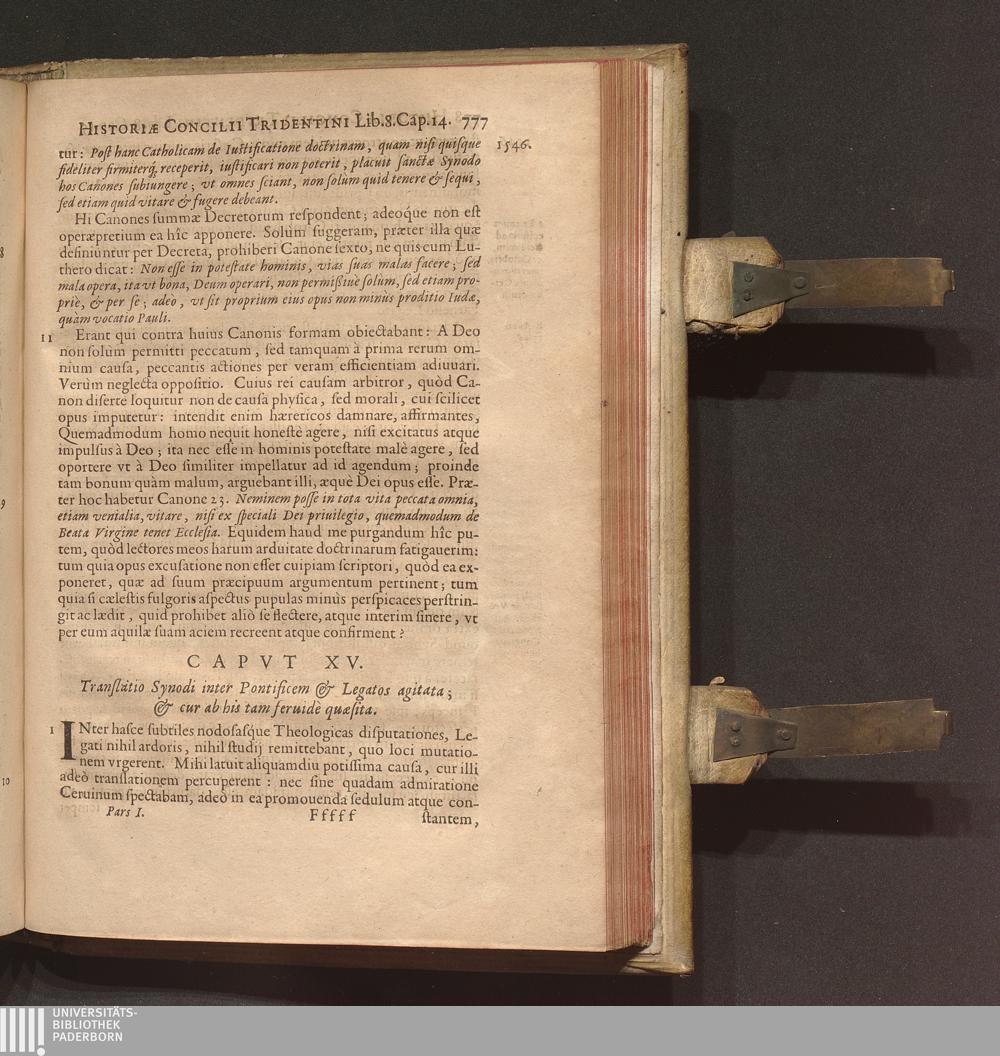 HISTORIÆ CONCILII TRIDENTINI Lib.8.Cap.14. 777
1546.
tur: Post hanc Catholicam de Iustificatione doctrinam, quam nisi quisque
fideliter firmiterq́, receperit, iustificari non poterit, placuit sanctæ Synodo
hos Canones subiungere; vt omnes sciant, non solùm quid tenere & sequi,
sed etiam quid vitare & fugere debeant.
Hi Canones summæ Decretorum respondent; adeoque non est
operæpretium ea hîc apponere. Solùm suggeram, præter illa quæ
definiuntur per Decreta, prohiberi Canone sexto, ne quis cum Lu-
thero dicat: Non esse in potestate hominis, vias suas malas facere; sed
mala opera, ita vt bona, Deum operari, non permißiue solùm, sed etiam pro-
priè, & per se; adeò, vt sit proprium eius opus non minùs proditio Iudæ,
quàm vocatio Pauli.
11 Erant qui contra huius Canonis formam obiectabant: A Deo
non solùm permitti peccatum, sed tamquam à prima rerum om-
nium causa, peccantis actiones per veram efficientiam adiuuari.
Verùm neglecta oppositio. Cuius rei causam arbitror, quòd Ca-
non disertè loquitur non de causa physica, sed morali, cui scilicet
opus imputetur: intendit enim hæreticos damnare, affirmantes,
Quemadmodum homo nequit honestè agere, nisi excitatus atque
impulsus à Deo; ita nec esse in hominis potestate malè agere, sed
oportere vt à Deo similiter impellatur ad id agendum; proinde
tam bonum quàm malum, arguebant illi, æquè Dei opus esse. Præ-
ter hoc habetur Canone 23. Neminem posse in tota vita peccata omnia,
etiam venialia, vitare, nisi ex speciali Dei priuilegio, quemadmodum de
Beata Virgine tenet Ecclesia. Equidem haud me purgandum hîc pu-
tem, quòd lectores meos harum arduitate doctrinarum fatigauerim:
tum quia opus excusatione non esset cuipiam scriptori, quòd ea ex-
poneret, quæ ad suum præcipuum argumentum pertinent; tum
quia si cælestis fulgoris aspectus pupulas minùs perspicaces perstrin-
git ac lædit, quid prohibet aliò se flectere, atque interim sinere, vt
per eum aquilæ suam aciem recreent atque confirment?
CAPVT XV.
Translatio Synodi inter Pontificem & Legatos agitata;
& cur ab his tam feruidè quæsita.
1 INter hasce subtiles nodosasque Theologicas disputationes, Le-
gati nihil ardoris, nihil studij remittebant, quo loci mutatio-
nem vrgerent. Mihi latuit aliquamdiu potissima causa, cur illi
adeò translationem percuperent: nec sine quadam admiratione
Ceruinum spectabam, adeò in ea promouenda sedulum atque con-
Pars I. Fffff stantem,
8
9
10
UNIVERSITÄTS-
BIBLIOTHEK
PADERBORN